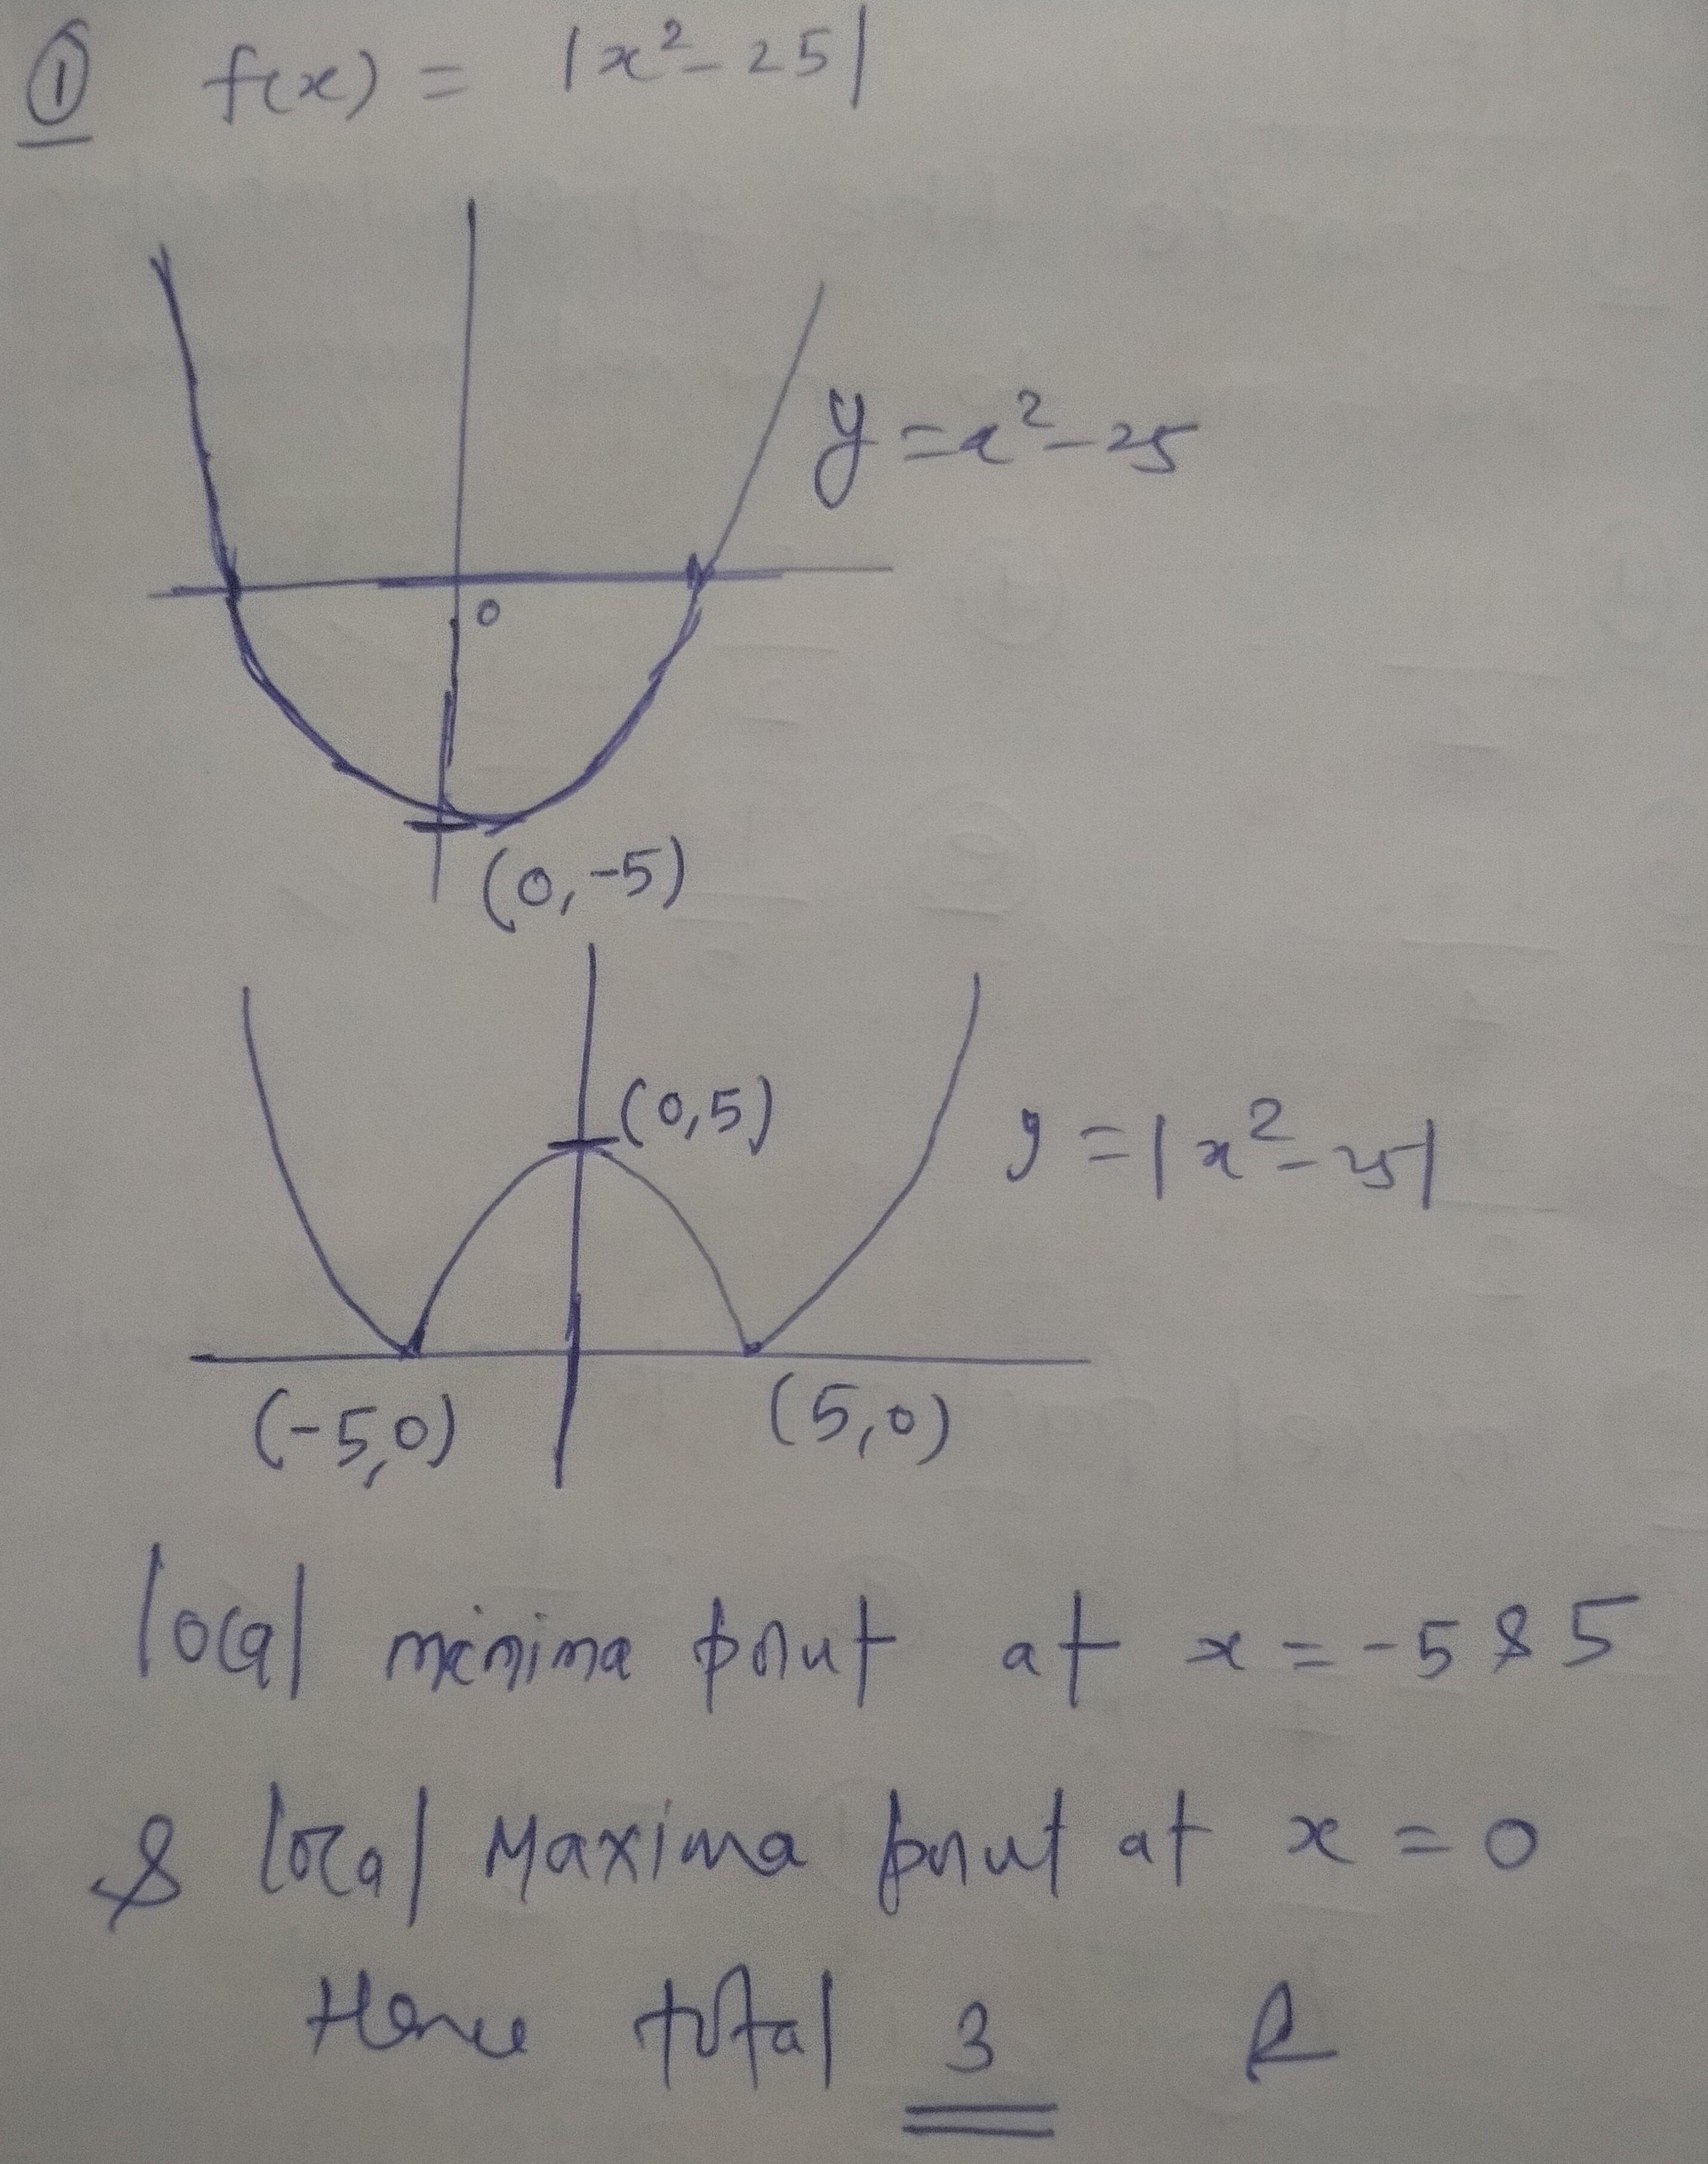 ① f(x) = |x²-25|
y = x²-25
0
(0,-5)
(0,5)
y = |x²-25|
(-5,0) (5,0)
local minima point at x = -5 & 5
& local Maxima point at x = 0
Hence total 3 R